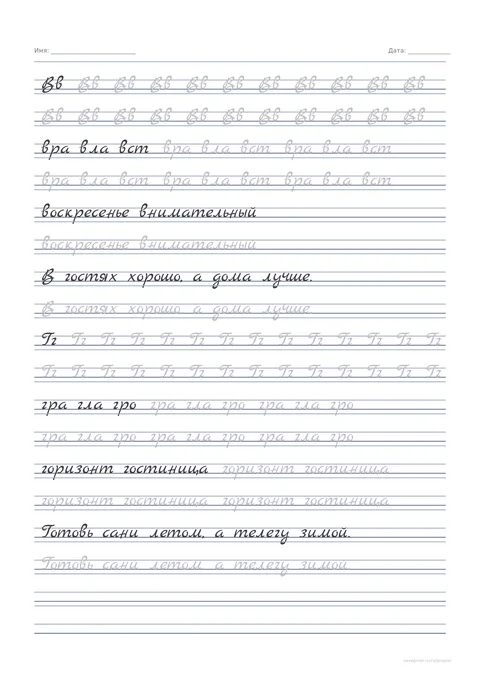 Имя: Дата:
Вв Вв Вв Вв Вв Вв Вв Вв Вв Вв Вв
Вв Вв Вв Вв Вв Вв Вв Вв Вв Вв Вв
вра вла вст вра вла вст вра вла вст
вра вла вст вра вла вст вра вла вст
воскресенье внимательный
воскресенье внимательный
В гостях хорошо, а дома лучше.
В гостях хорошо, а дома лучше.
Гг Гг Гг Гг Гг Гг Гг Гг Гг Гг Гг Гг Гг Гг
Гг Гг Гг Гг Гг Гг Гг Гг Гг Гг Гг Гг Гг Гг
гра гла гро гра гла гро гра гла гро
гра гла гро гра гла гро гра гла гро
горизонт гостиница горизонт гостиница
горизонт гостиница горизонт гостиница
Готовь сани летом, а телегу зимой.
Готовь сани летом, а телегу зимой.